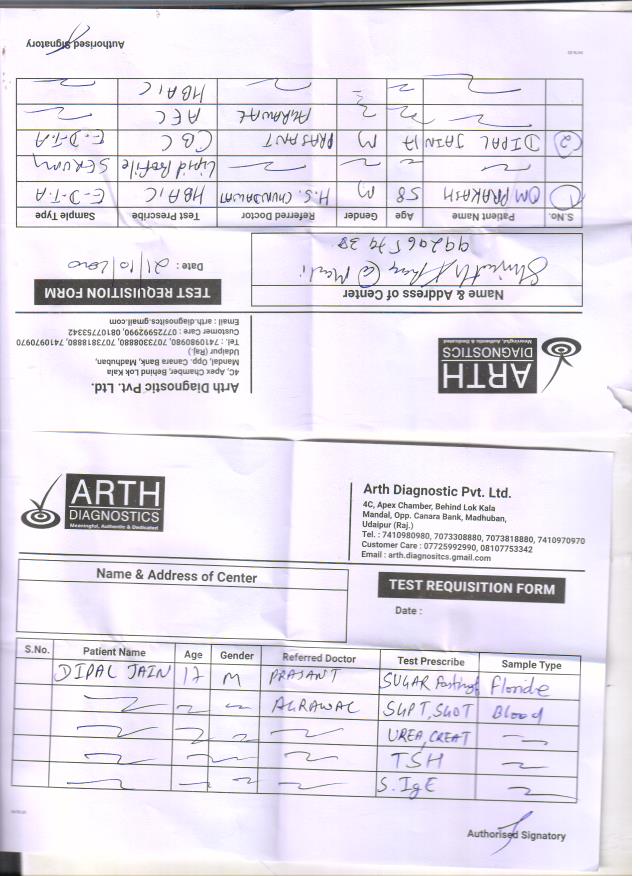 ARTH
DIAGNOSTICS
Meaningful, Authentic & Dedicated
Arth Diagnostic Pvt. Ltd.
4C, Apex Chamber, Behind Lok Kala
Mandal, Opp. Canara Bank, Madhuban,
Udaipur (Raj.)
Tel. : 7410980980, 7073308880, 7073818880, 7410970970
Customer Care : 07725992990, 08107753342
Email : arth.diagnositcs.gmail.com
Name & Address of Center
99296 57938
TEST REQUISITION FORM
Date : 21/10/2020
S.No. Patient Name Age Gender Referred Doctor Test Prescribe Sample Type
1 OM PRAKASH 58 M H.S. CHUNDAWAT HBA1C E-D-T-A
Lipid Profile SERUM
2 DIPAL JAIN 17 M PRASANT CBC E.D-T.A
AGRAWAL AEC
HBA1C
Authorised Signatory
ARTH
DIAGNOSTICS
Meaningful, Authentic & Dedicated
Arth Diagnostic Pvt. Ltd.
4C, Apex Chamber, Behind Lok Kala
Mandal, Opp. Canara Bank, Madhuban,
Udaipur (Raj.)
Tel. : 7410980980, 7073308880, 7073818880, 7410970970
Customer Care : 07725992990, 08107753342
Email : arth.diagnositcs.gmail.com
Name & Address of Center
TEST REQUISITION FORM
Date :
S.No. Patient Name Age Gender Referred Doctor Test Prescribe Sample Type
DIPAL JAIN 17 M PRASANT SUGAR Fasting Floride
AGRAWAL SGPT, SGOT Blood
UREA, CREAT
TSH
S. IgE
Authorised Signatory